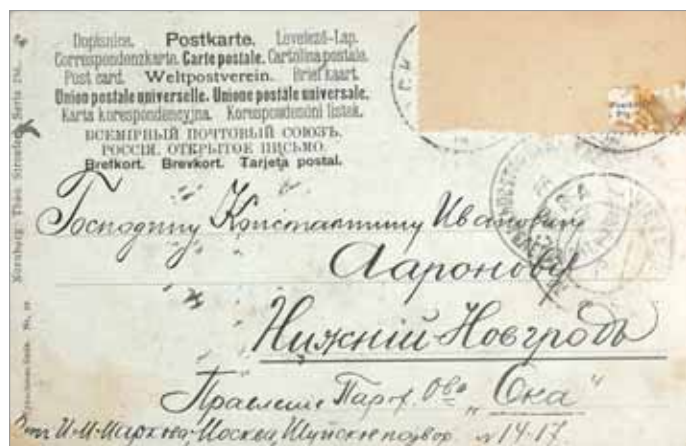 Dopisnice. Postkarte. Levelező-Lap.
Correspondenzkarte. Carte postale. Cartolina postale.
Post card. Weltpostverein. Briefkaart.
Union postale universelle. Unione postale universale.
Karta korespondencyjna. Korespondenční lístek.
ВСЕМІРНЫЙ ПОЧТОВЫЙ СОЮЗЪ.
РОССІЯ. ОТКРЫТОЕ ПИСЬМО.
Brefkort. Brevkort. Tarjeta postal.
Господину Константину Ивановичу
Ааронову
Нижній-Новгродъ
Правление Парох. О-ва „Ока“
Москва, Шуйское подвор. № 14-17
Nürnberg: Theo. Stroefer, Serie